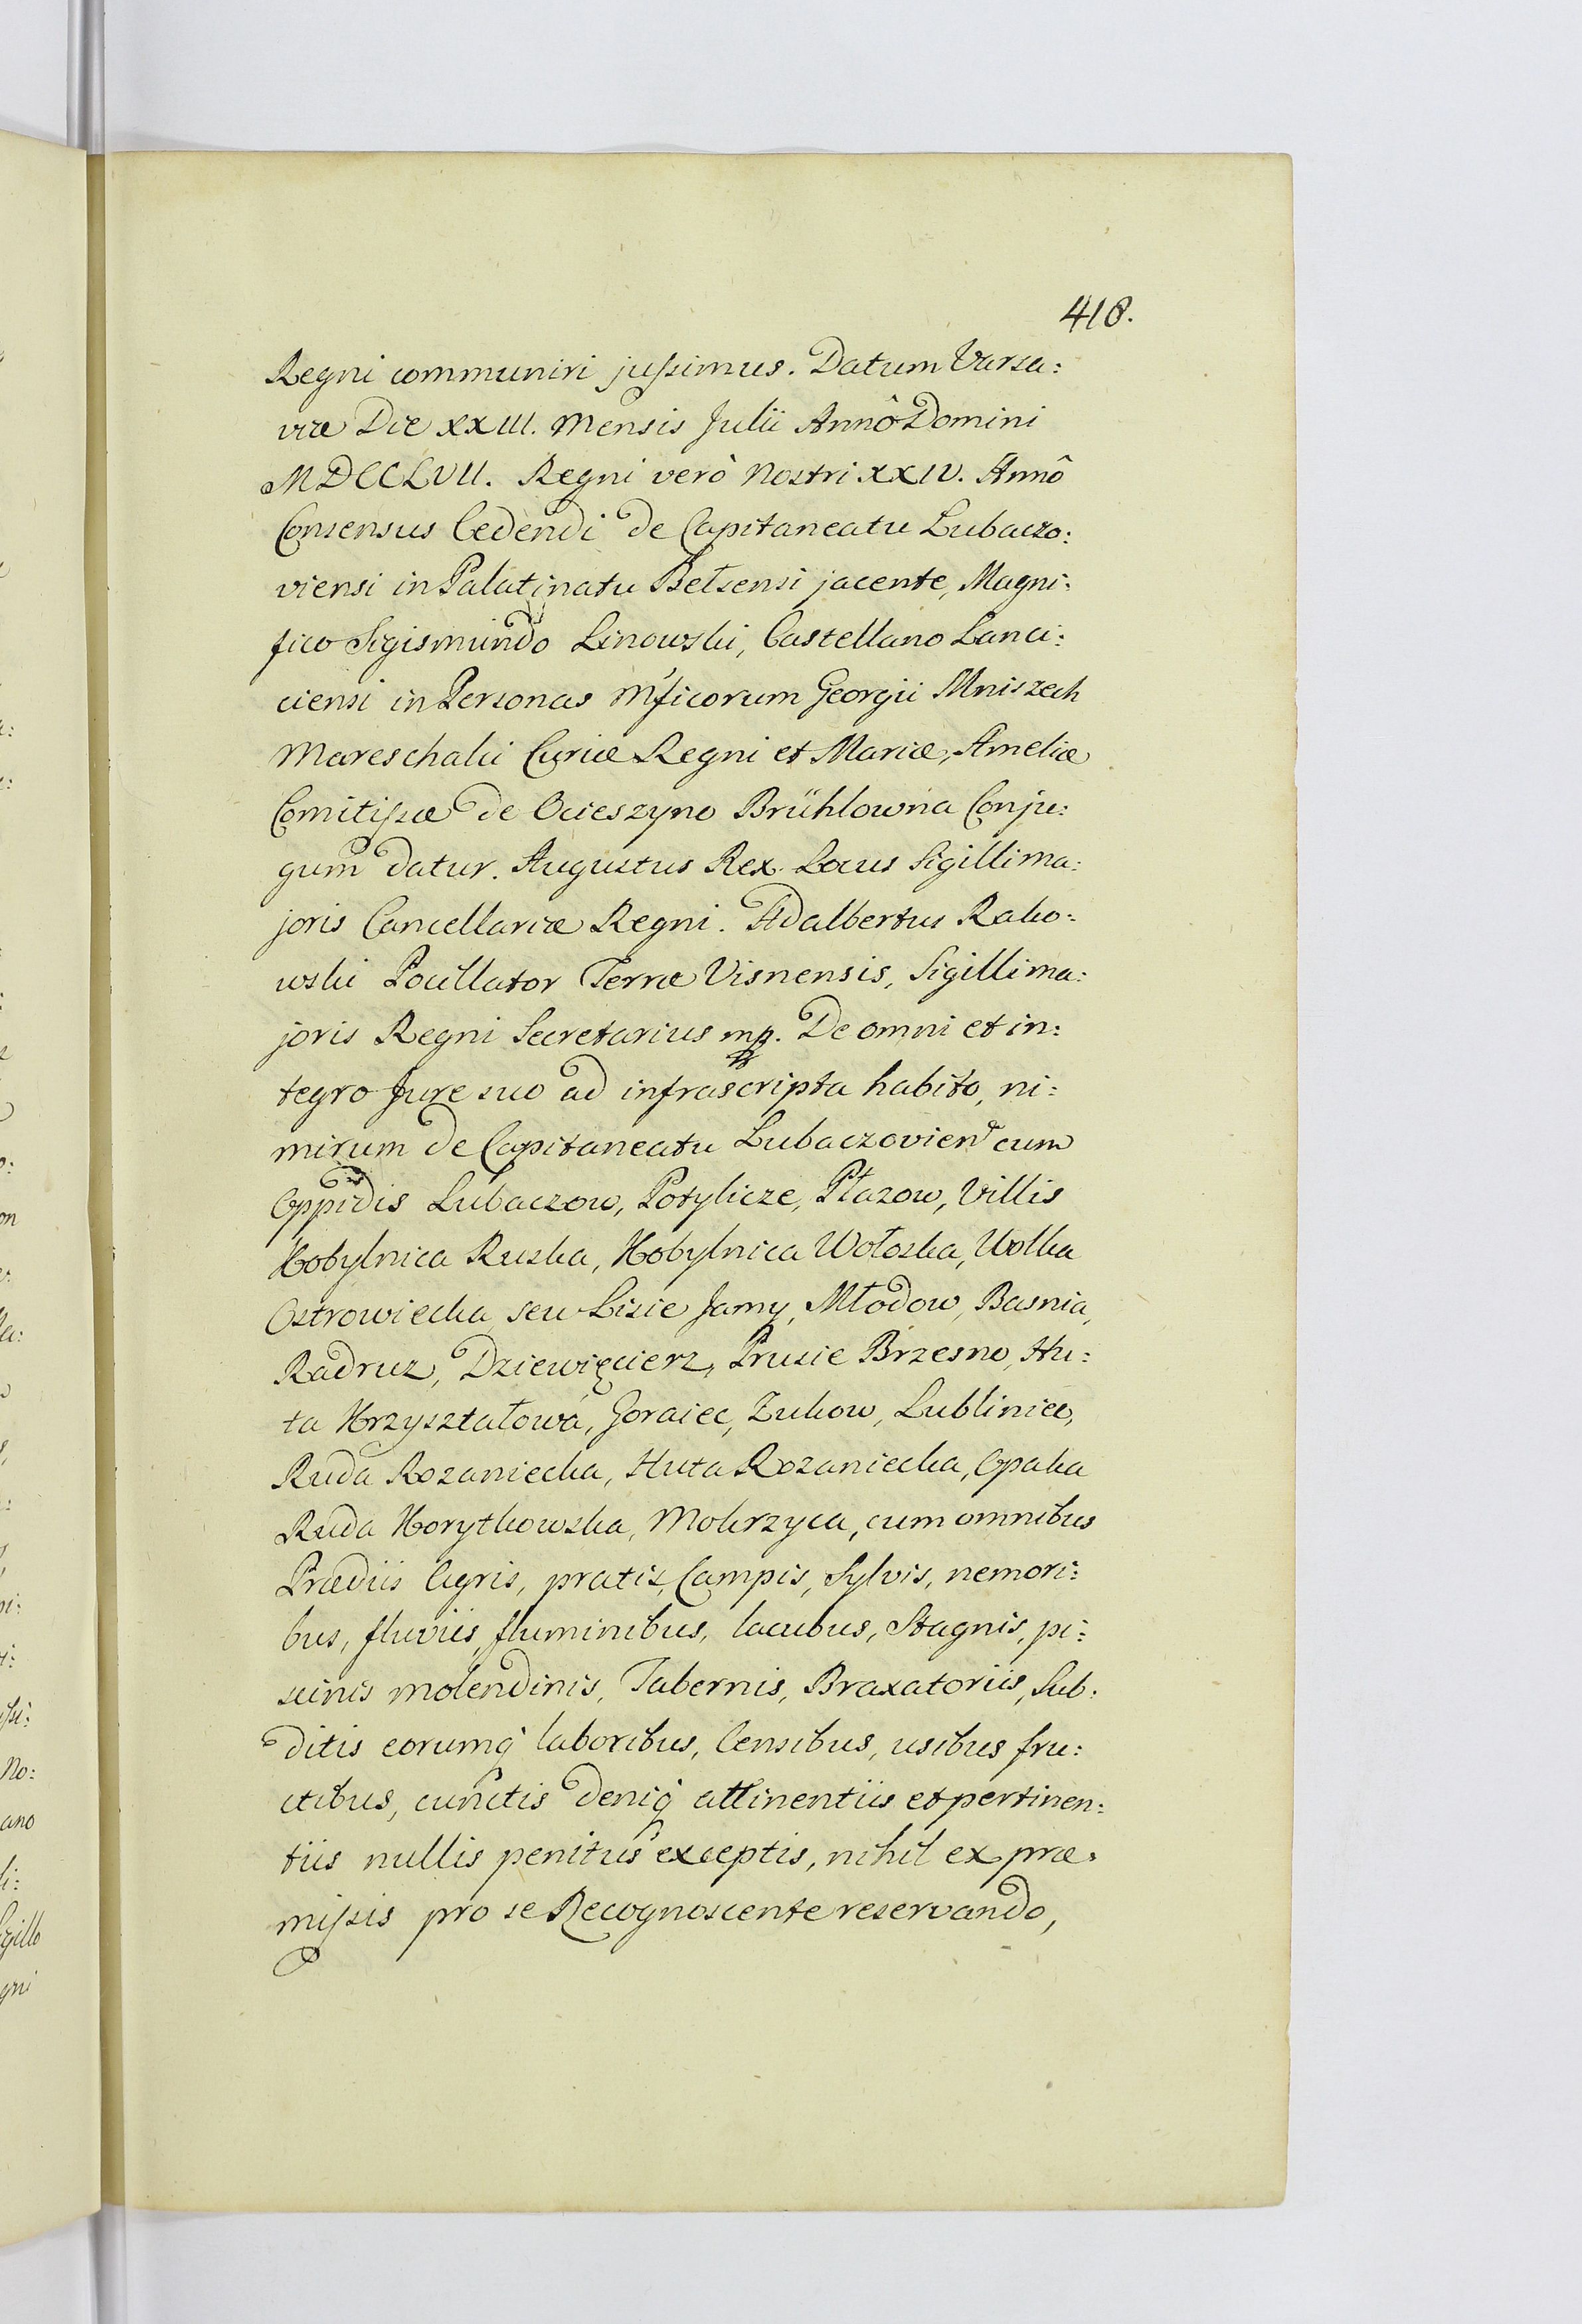 418.
Regni communiri jussimus. Datum Varsa:
viæ Die XXIII. Mensis Julii Annô Domini
MDCCLVII. Regni verò Nostri XXIV. Annô
Consensus Cedendi de Capitaneatu Lubaczo:
viensi in Palatinatu Bełzensi jacente, Magni:
fico Sigismundo Linowski, Castellano Lanci:
ciensi in Personas Mficorum Georgii Mniszech
Mareschalci Curiæ Regni et Mariæ, Ameliæ
Comitissæ de Ocieszyno Brühlowna Conju:
gum datur. Augustus Rex. Locus Sigilli ma:
joris Cancellariæ Regni. Adalbertus Rako:
wski Pocillator Terræ Visnensis, Sigilli ma:
joris Regni Secretarius mp. De omni et in:
tegro Jure suo ad infrascripta habito, ni:
mirum de Capitaneatu Lubaczovien cum
Oppidis Lubaczow, Potylicze, Płazow, Villis
Kobylnica Ruska, Kobylnica Wołoska, Wolka
Ostrowiecka seu Lisie Jamy, Młodow, Basnia,
Radruz, Dziewięcierz, Prusie Brzesno, Hu:
ta Krzyształowa, Goraiec, Zukow, Lubliniec,
Ruda Rozaniecka, Huta Rozaniecka, Opaka
Ruda Korytkowska, Mokrzyca, cum omnibus
Prædiis Agris, pratis, Campis, Sylvis, nemori:
bus, fluviis, fluminibus, lacubus, Stagnis, pi:
scinis molendinis, Tabernis, Braxatoriis, Sub:
ditis eorumq́ laboribus, Censibus, usibus fru:
ctibus, cunctis deniq́ attinentiis et pertinen:
tiis nullis penitus exceptis, nihil ex præ:
missis pro se Recognoscente reservando,